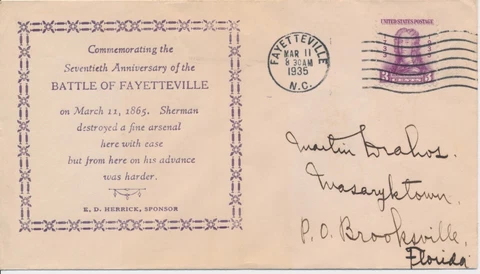 Commemorating the
Seventieth Anniversary of the
BATTLE OF FAYETTEVILLE
on March 11, 1865. Sherman
destroyed a fine arsenal
here with ease
but from here on his advance
was harder.
E. D. HERRICK, SPONSOR
FAYETTEVILLE
MAR 11
8 30 AM
1935
N.C.
UNITED STATES POSTAGE
3 3
Martin Drahos.
Masaryktown.
P. O. Brooksville,
Florida